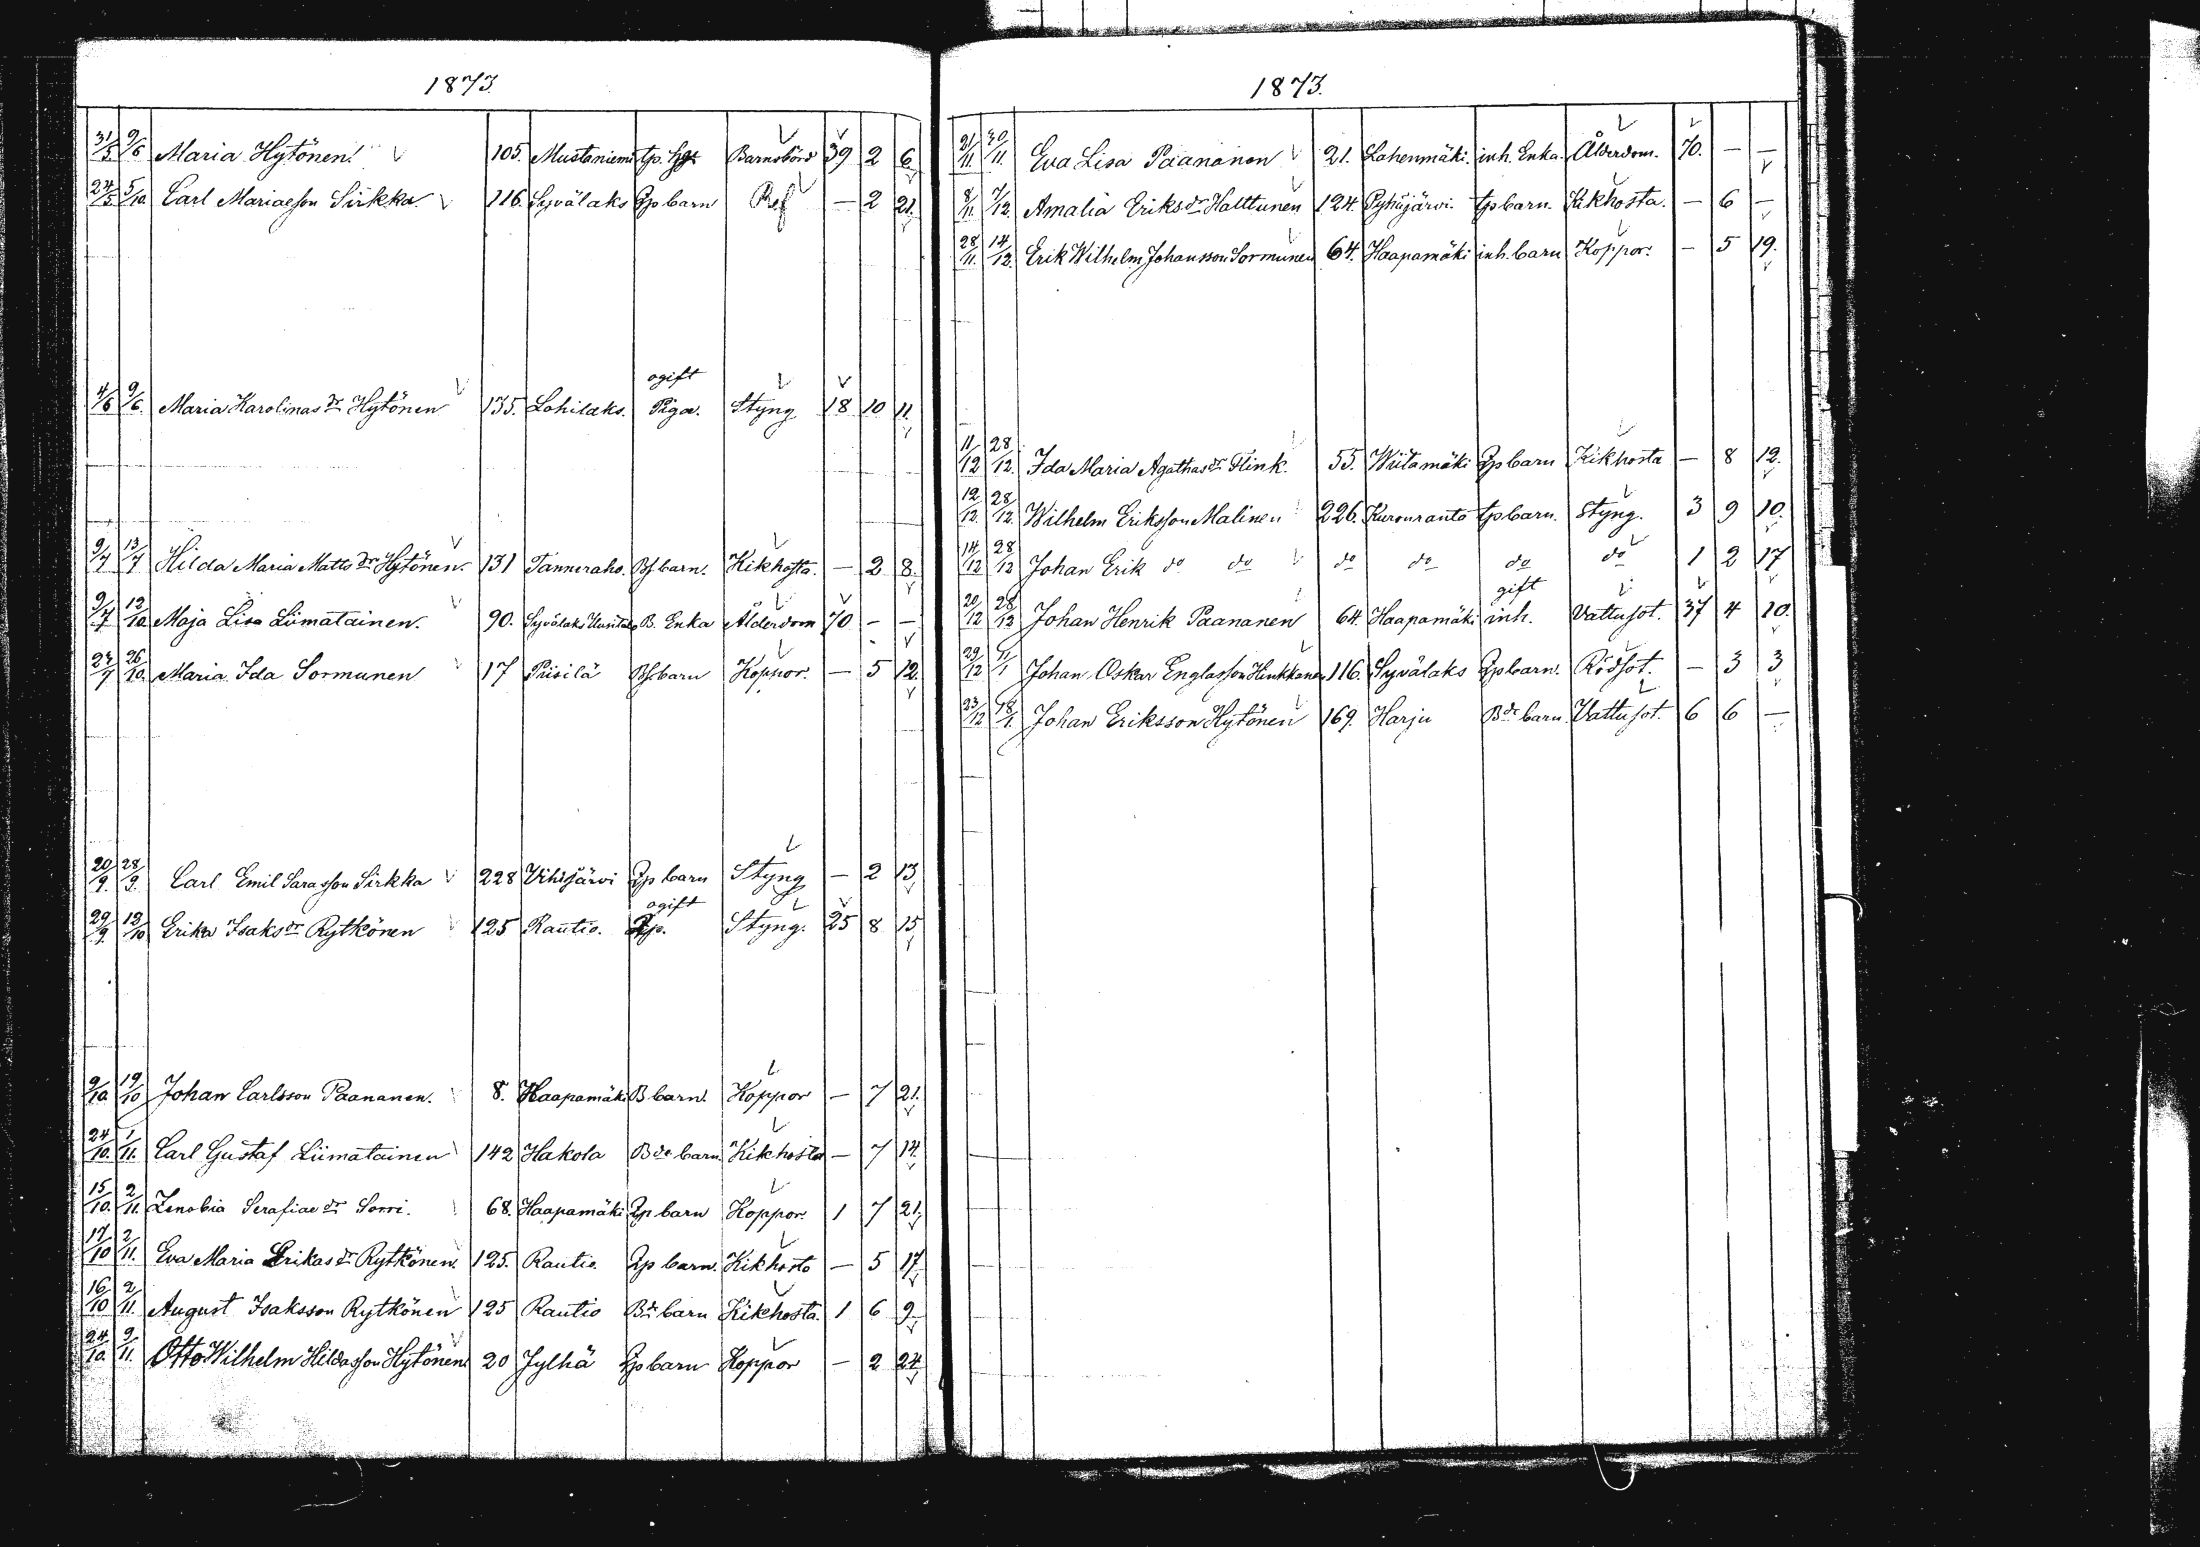 1873.
31/5 9/6 Maria Hytönen. 105. Mustaniemi tp. Barnsbörd 39 2 6
24/5 5/10 Carl Mariaesson Sirkka 116. Syvälaks Tp barn 2 21.
ogift
4/6 9/6. Maria Karolinas dr Hytönen 135. Lohilaks. Piga. Styng 18 10 11.
9/7 13/7 Hilda Maria Matts dr Hytönen. 131 Tanneraho. barn. Kikhosta. — 2 8.
9/7 12/10 Maja Lisa Liimatainen. 90. Syvälaks Uusitalo B. Enka Ålderdom 70 — —
27/7 26/10. Maria Ida Sormunen 17 Piisilä barn Koppor. — 5 12.
20/9. 28/9. Carl Emil Sarasson Sirkka 228 Vihijärvi Tp barn Styng — 2 13
ogift
29/9. 12/10 Erika Isaks dr Rytkönen 125 Rautio. Tp. Styng. 25 8 15
9/10. 19/10 Johan Carlsson Paananen. 8. Haapamäki B barn. Koppor — 7 21.
24/10. 1/11. Carl Gustaf Liimatainen 142 Hakola B de barn. Kikhosta — 7 14.
15/10. 2/11. Zenobia Serafiae dr Sorri. 68. Haapamäki Tp barn Koppor. 1 7 21.
17/10 2/11. Eva Maria Erikas dr Rytkönen. 125. Rautio. Tp barn. Kikhosta — 5 17.
16/10 2/11. August Isaksson Rytkönen 125 Rautio B de barn Kikhosta. 1 6 9.
24/10. 9/11. Otto Wilhelm Hildasson Hytönen 20 Jylhä Tp barn Koppor — 2 24.
1873.
21/11. 30/11. Eva Lisa Paananen 21. Lahenmäki. inh. Enka. Ålderdom. 70. — —
8/11. 7/12. Amalia Eriks dr Halttunen 124. Pyhäjärvi. tp barn. Kikhosta. — 6 —
28/11. 14/12. Erik Wilhelm Johansson Sormunen 64. Haapamäki inh. barn Koppor. — 5 19.
11/12 28/12. Ida Maria Agathas dr Flink. 55. Wiitamäki Tp barn Kikhosta — 8 12.
12/12. 28/12. Wilhelm Eriksson Malinen 226. Kuronranto tp barn. Styng. 3 9 10.
14/12 28/12 Johan Erik do do do do do do 1 2 17
gift
20/12 28/12 Johan Henrik Paananen 64. Haapamäki inh. Vattusot. 37 4 10.
29/12 11/1 Johan Oskar Englasson Hinkkanen 116. Syvälaks Tp barn. Rödsot. — 3 3
23/12 18/1. Johan Eriksson Hytönen 169. Harju B de barn. Vattusot. 6 6 —